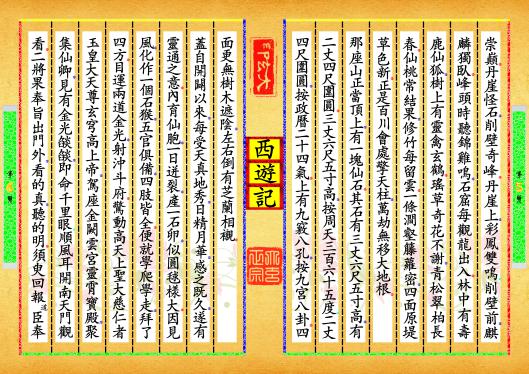 崇巔丹崖怪石削壁奇峰丹崖上彩鳳雙鳴削壁前麒
麟獨臥峰頭時聽錦雞鳴石窟每觀龍出入林中有壽
鹿仙狐樹上有靈禽玄鶴瑤草奇花不謝青松翠柏長
春仙桃常結果修竹每留雲一條澗壑藤蘿密四面原堤
草色新正是百川會處擎天柱萬劫無移大地根
那座山正當頂上有一塊仙石其石有三丈六尺五寸高有
二丈四尺圍圓三丈六尺五寸高按周天三百六十五度二丈
四尺圍圓按政曆二十四氣上有九竅八孔按九宮八卦四
西遊記
面更無樹木遮陰左右倒有芝蘭相襯
蓋自開闢以來每受天真地秀日精月華感之既久遂有
靈通之意內育仙胞一日迸裂產一石卵似圓毬樣大因見
風化作一個石猴五官俱備四肢皆全便就學爬學走拜了
四方目運兩道金光射沖斗府驚動高天上聖大慈仁者
玉皇大天尊玄穹高上帝駕座金闕雲宮靈霄寶殿聚
集仙卿見有金光燄燄即命千里眼順風耳開南天門觀
看二將果奉旨出門外看的真聽的明須臾回報道臣奉